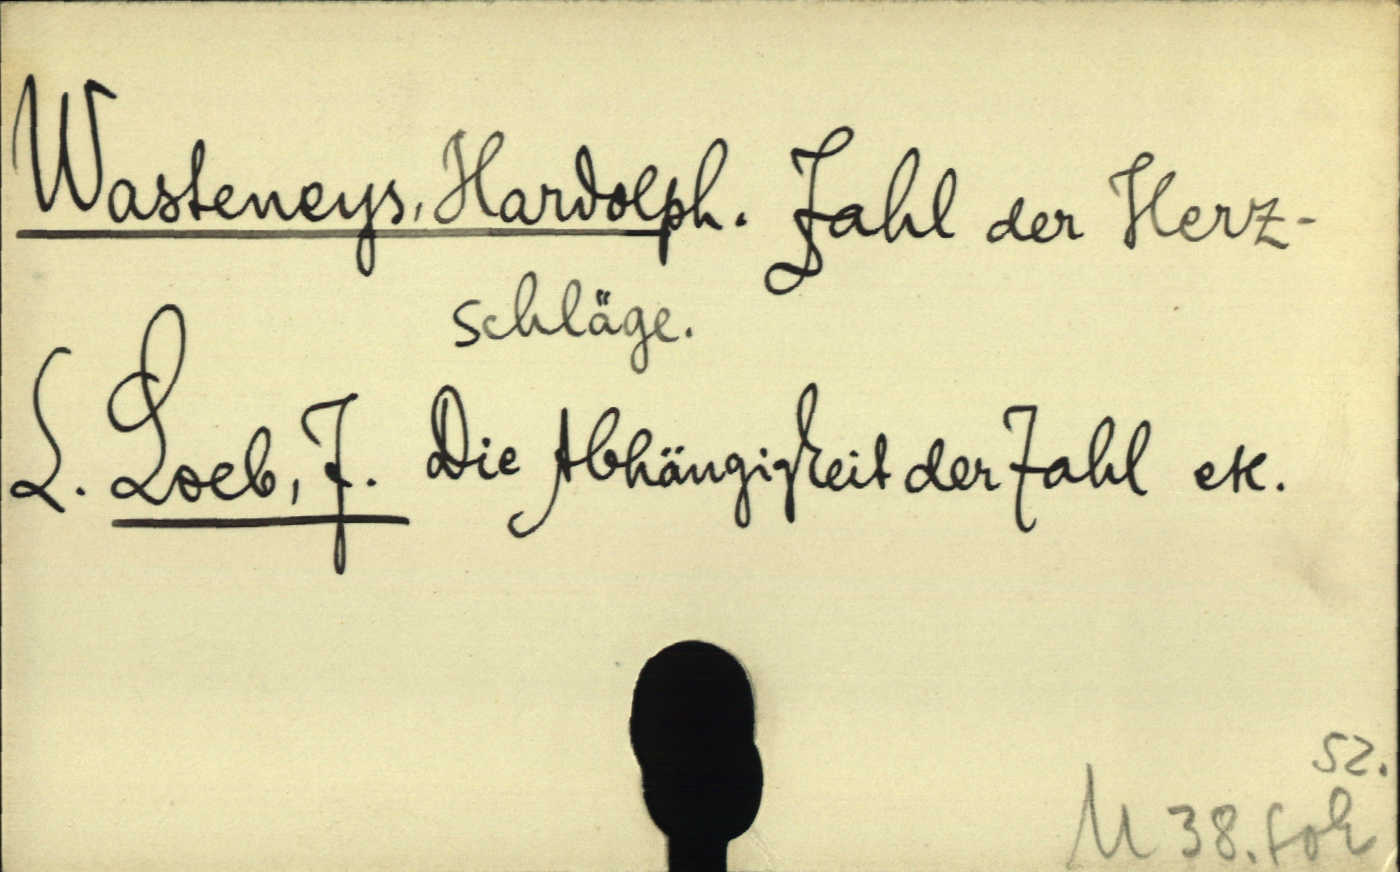 Wasteneys, Hardolph. Zahl der Herz-
schläge.
S. Loeb, J. Die Abhängigkeit der Zahl etc.
52.
M 38.